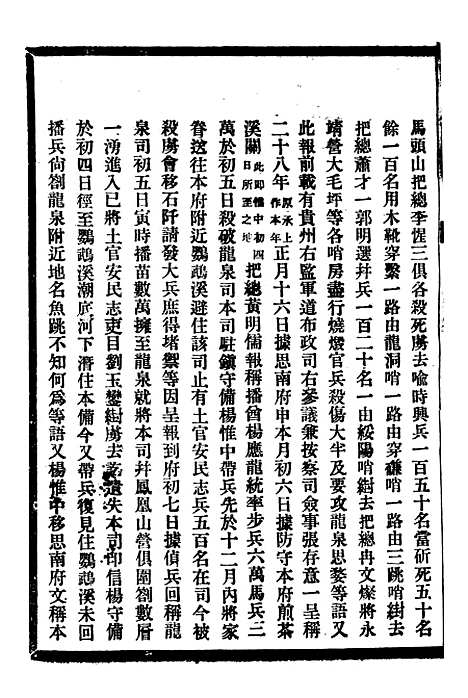 馬頭山把總李惺三俱各殺死虜去喩時興兵一百五十名當斫死五十名
餘一百名用木靴穿繫一路由龍洞哨一路由穿礲哨一路由三跳哨紏去
把總蕭才一郭明選幷兵一百二十名一由綏陽哨紏去把總冉文燦將永
靖營大毛坪等各哨房盡行燒燬官兵殺傷大半及要攻龍泉思婺等語又
此報前載有貴州右監軍道布政司右參議兼按察司僉事張存意一呈稱
二十八年原承上作本年正月十六日據思南府申本月初六日據防守本府煎茶
溪關此即惟中初四日所至之地把總黃明儒報稱播酋楊應龍統率步兵六萬馬兵三
萬於初五日殺破龍泉司本司駐鎭守備楊惟中帶兵先於十二月內將家
眷送往本府附近鸚鵡溪避住該司止有土官安民志兵五百名在司今被
殺虜會移石阡請發大兵庶得堵禦等因呈報到府初七日據偵兵回稱龍
泉司初五日寅時播苗數萬擁至龍泉就將本司幷鳳凰山營俱圍劄數層
一湧進入已將土官安民志吏目劉玉鑾紏虜去訖遺失本司印信楊守備
於初四日徑至鸚鵡溪潮底河下潛住本備今又帶兵復見住鸚鵡溪未回
播兵尙劄龍泉附近地名魚跳不知何爲等語又楊惟中移思南府文稱本